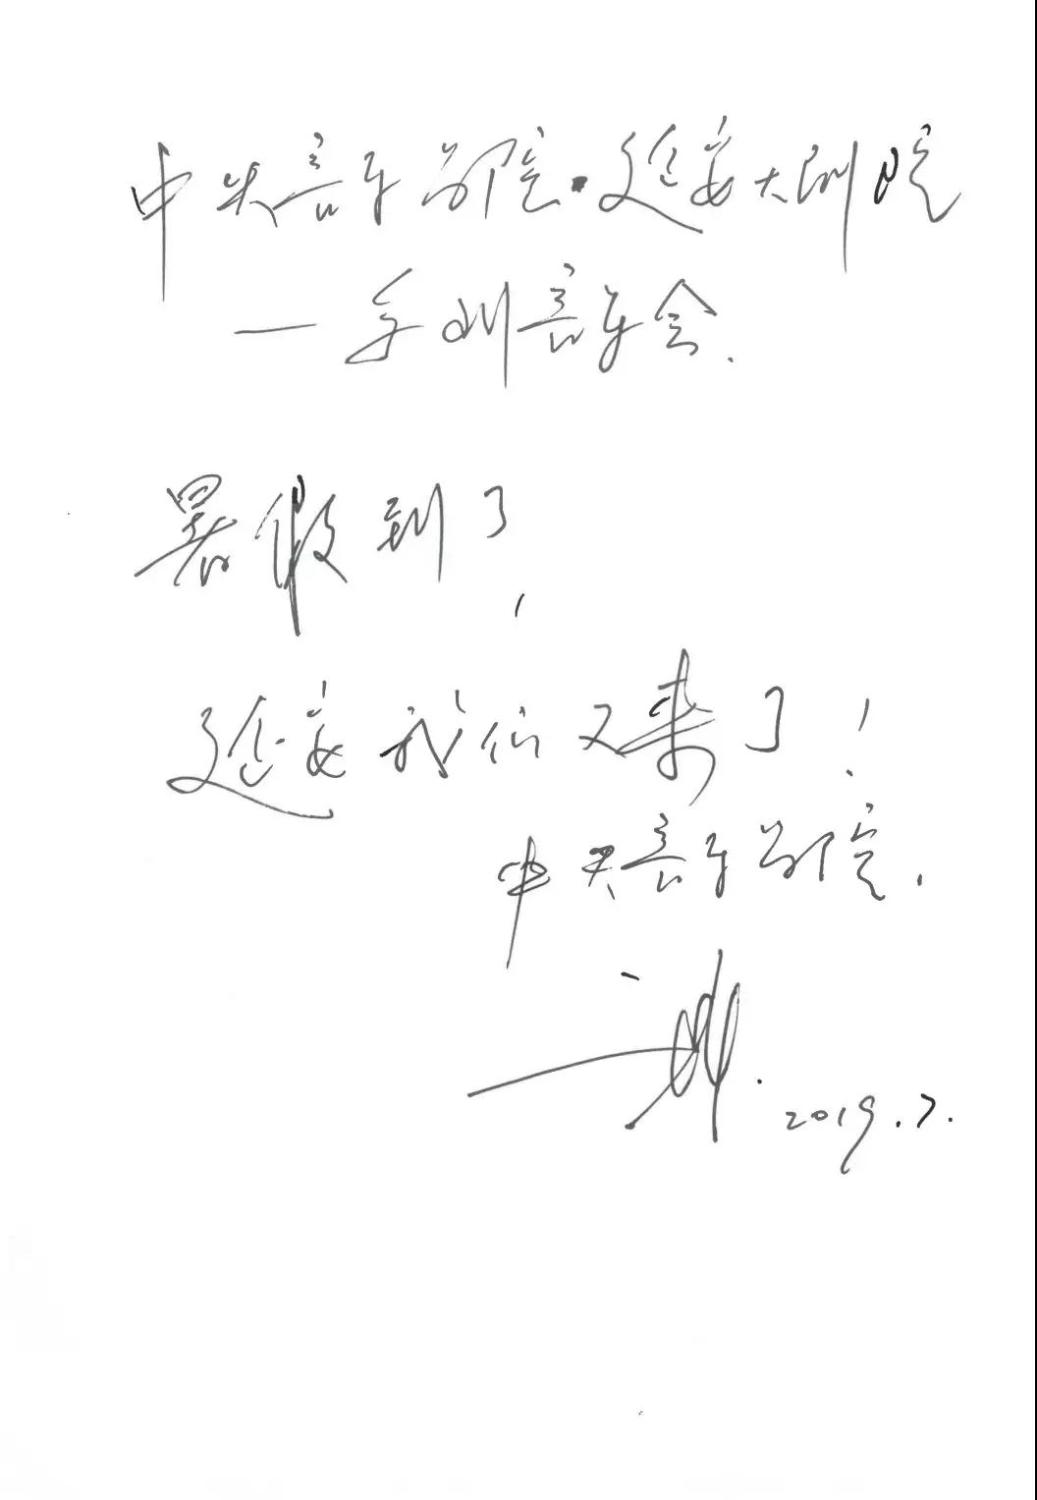 中央音乐学院·延安大剧院
——季州音乐会.
暑假到了,
延安我们又来了!
中央音乐学院.
2019.7.